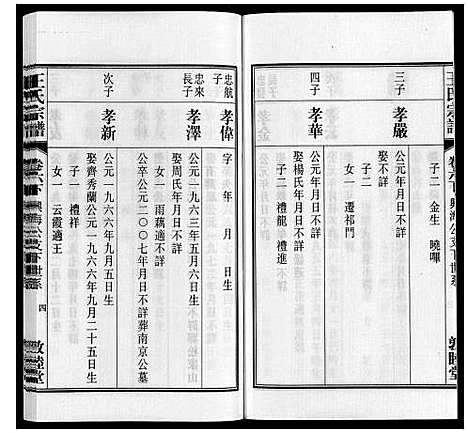 王氏宗譜
卷六下
三子
孝嚴
公元一年月日不詳生
娶不詳
子二 金生 曉嗶
女一 遷祁門
四子
孝華
公元一年月日不詳生
娶楊氏年月日不詳
子二 禮龍 禮進
敦睦堂
忠航
子
孝偉
字 年 月 日生
忠來
長子
孝澤
公元一九六三年五月六日生
娶周氏年月日不詳
女一 雨藕適不詳
公卒公元二00七年月日不詳葬南京公墓
次子
孝新
公元一九六六年九月五日生
娶齊秀蘭公元一九六六年九月二十五日生
子一 禮祥
女一 云霞適王
王氏宗譜
四
敦睦堂